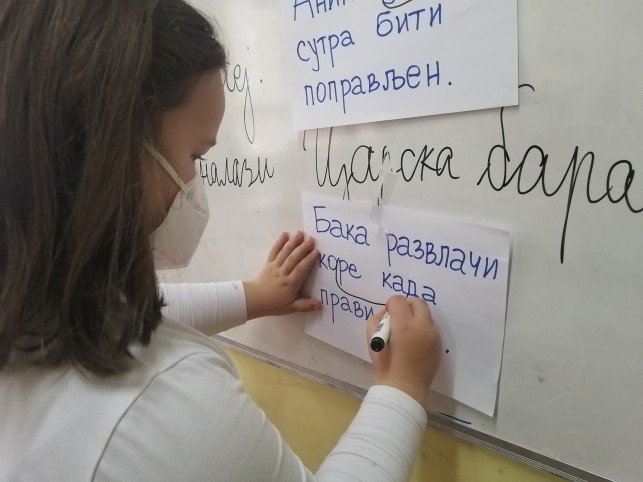 сутра бити
поправљен.
налази Царска бара
Бака развлачи
коре када
прави